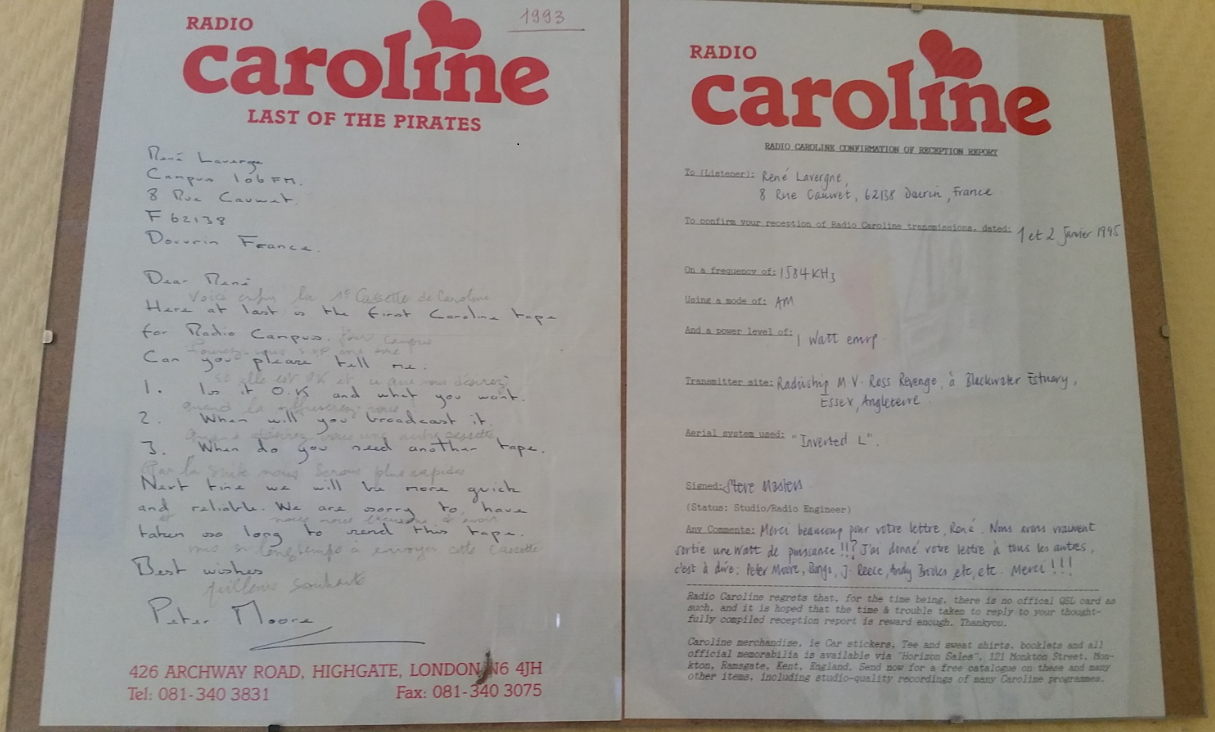 1993
RADIO
caroline
LAST OF THE PIRATES
René Lavergne
Campus 106 FM.
8 Rue Cauwet.
F 62138
Douvrin France.
Dear René
Voici enfin la 1e Cassette de Caroline
Here at last is the first Caroline tape
for Radio Campus. pour campus
Can you please tell me.
si elle est OK et ce que vous désirez
1. Is it O.K and what you want.
quand la diffuserez vous
2. When will you broadcast it
Quand désirez vous une autre cassette
3. When do you need another tape.
Par la suite nous serons plus rapides
Next time we will be more quick
and reliable. We are sorry to have
et nous nous excusons d'avoir
taken so long to send this tape.
mis si longtemps à envoyer cette cassette
Best wishes
meilleurs souhaits
Peter Moore
426 ARCHWAY ROAD, HIGHGATE, LONDON N6 4JH
Tel: 081-340 3831 Fax: 081-340 3075
RADIO
caroline
RADIO CAROLINE CONFIRMATION OF RECEPTION REPORT
To (Listener): René Lavergne,
8 Rue Cauwet, 62138 Douvrin, France
To confirm your reception of Radio Caroline transmissions, dated: 1 et 2 Janvier 1995
On a frequency of: 1584 KHz
Using a mode of: AM
And a power level of: 1 Watt emrp.
Transmitter site: Radioship M.V. Ross Revenge, à Blackwater Estuary,
Essex, Angleterre.
Aerial system used: "Inverted L".
Signed: Steve Masters
(Status: Studio/Radio Engineer)
Any Comments: Merci beaucoup pour votre lettre, René. Nous avons vraiment
sortie une Watt de puissance !!? J'ai donné votre lettre à tous les autres,
c'est à dire: Peter Moore, J. Reece, Andy etc, etc. Merci !!!
Radio Caroline regrets that, for the time being, there is no offical QSL card as
such, and it is hoped that the time & trouble taken to reply to your thought-
fully compiled reception report is reward enough. Thankyou.
Caroline merchandise, ie Car stickers, Tee and sweat shirts, booklets and all
official memorabilia is available via "Horizon Sales", 121 Monkton Street, Mon-
kton, Ramsgate, Kent, England. Send now for a free catalogue on these and many
other items, including studio-quality recordings of many Caroline programmes.